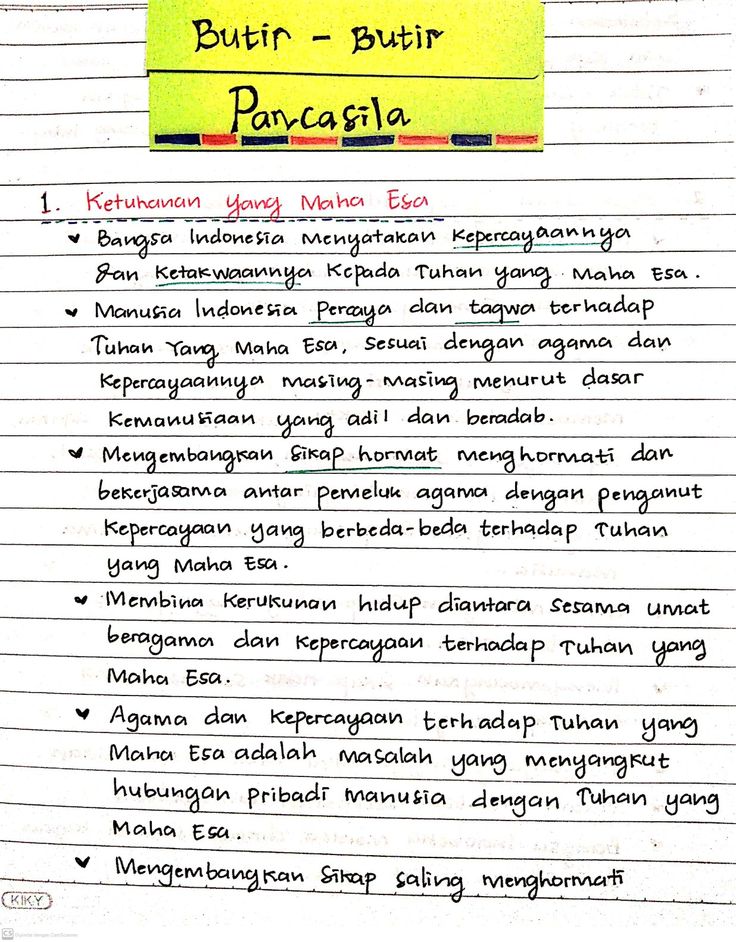 Butir - Butir
Pancasila
1. Ketuhanan yang Maha Esa
Bangsa Indonesia menyatakan kepercayaannya
dan ketakwaannya kepada Tuhan yang Maha Esa.
Manusia Indonesia percaya dan taqwa terhadap
Tuhan Yang Maha Esa, sesuai dengan agama dan
kepercayaannya masing-masing menurut dasar
kemanusiaan yang adil dan beradab.
Mengembangkan sikap hormat menghormati dan
bekerjasama antar pemeluk agama dengan penganut
kepercayaan yang berbeda-beda terhadap Tuhan
yang Maha Esa.
Membina kerukunan hidup diantara sesama umat
beragama dan kepercayaan terhadap Tuhan yang
Maha Esa.
Agama dan kepercayaan terhadap Tuhan yang
Maha Esa adalah masalah yang menyangkut
hubungan pribadi manusia dengan Tuhan yang
Maha Esa.
Mengembangkan sikap saling menghormati
KIKY
CS Dipindai dengan CamScanner